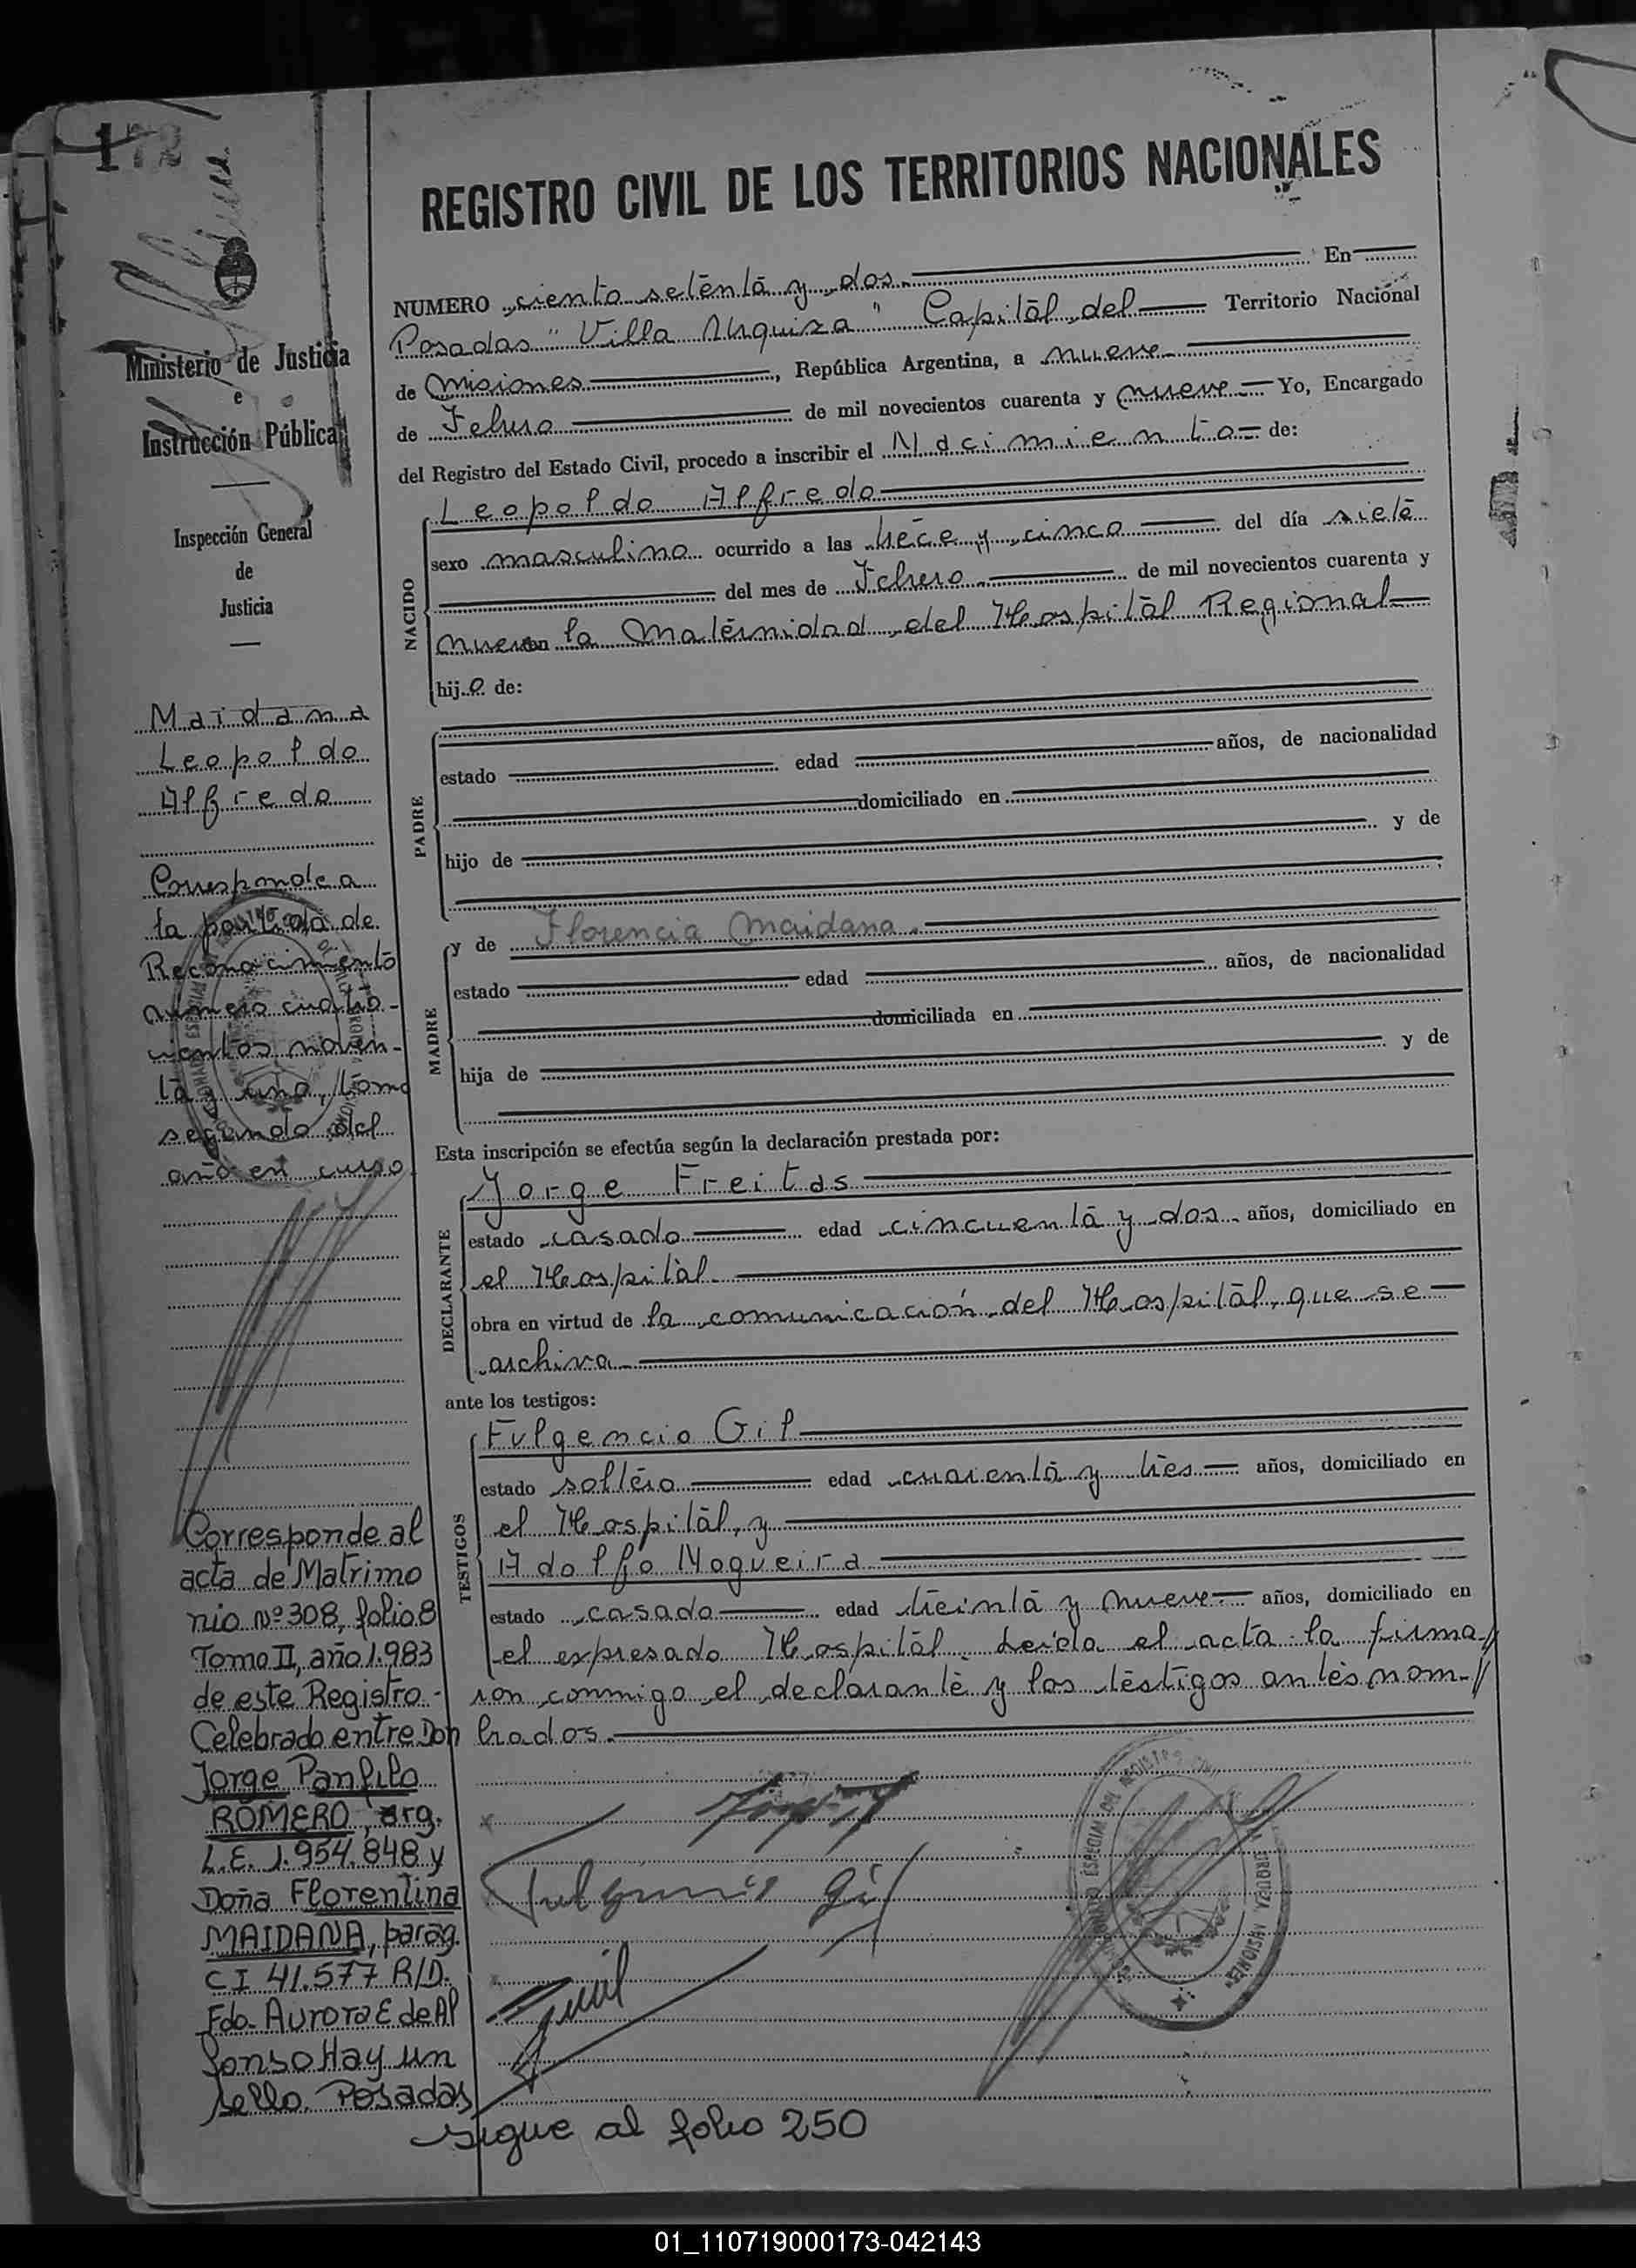 172
REGISTRO CIVIL DE LOS TERRITORIOS NACIONALES
Ministerio de Justicia
e
Instrucción Pública
Inspección General
de
Justicia
Maidana
Leopoldo
Alfredo
Corresponde a
la partida de
Reconocimiento
número cuatro-
cientos noven-
ta y uno, tomo
segundo del
año en curso
Corresponde al
acta de Matrimo
nio Nº 308, folio 8
Tomo II, año 1.983
de este Registro.-
Celebrado entre Don
Jorge Panfilo
ROMERO, arg.
L.E. 1.954.848 y
Doña Florentina
MAIDANA, parag.
CI 41.577 R/D.
Fdo. Aurora E de Al
fonso Hay un
sello. Posadas
NUMERO ciento setenta y dos.- En
Posadas "Villa Urquiza" Capital del Territorio Nacional
de Misiones, República Argentina, a nueve
de Febrero de mil novecientos cuarenta y nueve Yo, Encargado
del Registro del Estado Civil, procedo a inscribir el Nacimiento de:
NACIDO
Leopoldo Alfredo
sexo masculino ocurrido a las trece y cinco del día siete
del mes de Febrero de mil novecientos cuarenta y
nueve en la Maternidad del Hospital Regional
hijo de:
PADRE
estado edad años, de nacionalidad
domiciliado en
hijo de y de
MADRE
y de Florencia Maidana.
estado edad años, de nacionalidad
domiciliada en
hija de y de
Esta inscripción se efectúa según la declaración prestada por:
DECLARANTE
Jorge Freitas
estado casado edad cincuenta y dos años, domiciliado en
el Hospital
obra en virtud de la comunicación del Hospital, que se
archiva
ante los testigos:
TESTIGOS
Fulgencio Gil
estado soltero edad cuarenta y tres años, domiciliado en
el Hospital, y
Adolfo Nogueira
estado casado edad treinta y nueve años, domiciliado en
el expresado Hospital. Leída el acta la firma-//
ron conmigo el declarante y los testigos antes nom-//
brados.
Fulgencio Gil
sigue al folio 250
01_110719000173-042143